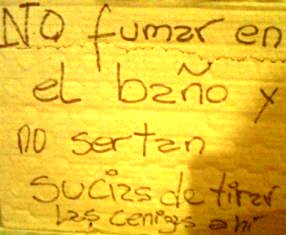 NO fumar en
el baño y
no ser tan
sucias de tirar
las cenizas ahi